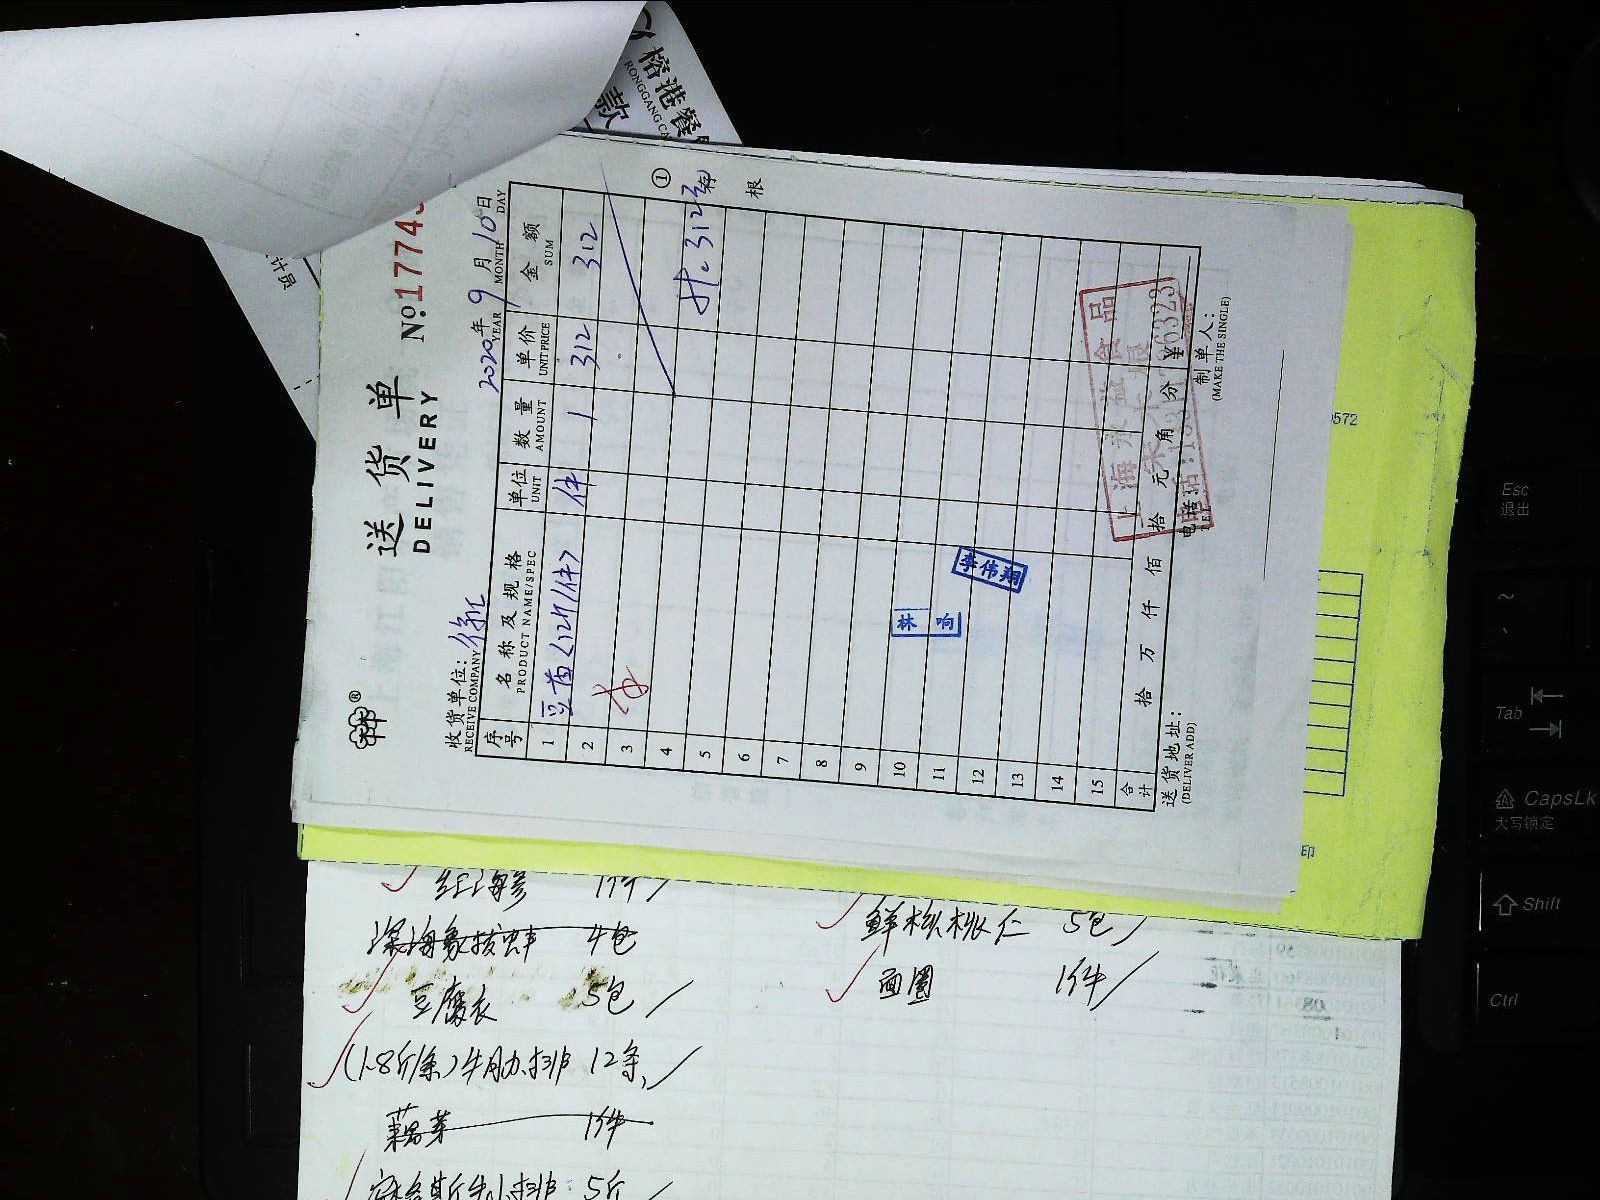 榕港餐
RONGGANG CA
款
计员
送货单
DELIVERY
No.1774
收货单位：徐汇
RECEIVE COMPANY
2020年9月10日
YEAR MONTH DAY
序号 名称及规格 单位 数量 单价 金额
PRODUCT NAME/SPEC UNIT AMOUNT UNIT PRICE SUM
1 豆苗<12斤/件> 件 1 312 312
2
3
4
5
6
7
8
9
10
11
12
13
14
15
①存根
合计 拾 万 仟 佰 拾 元 角 分 ¥
送货地址：
(DELIVER ADD)
电话：
TEL
制单人：
(MAKE THE SINGLE)
李伟翔
572
印
红海参 1件
深海象拔蚌 4包
豆腐衣 5包
(1.8斤/条)牛肋排 12条
藕芽 1件
5斤
鲜核桃仁 5包
面圈 1件
Esc
退出
Tab
CapsLk
大写锁定
Shift
Ctrl